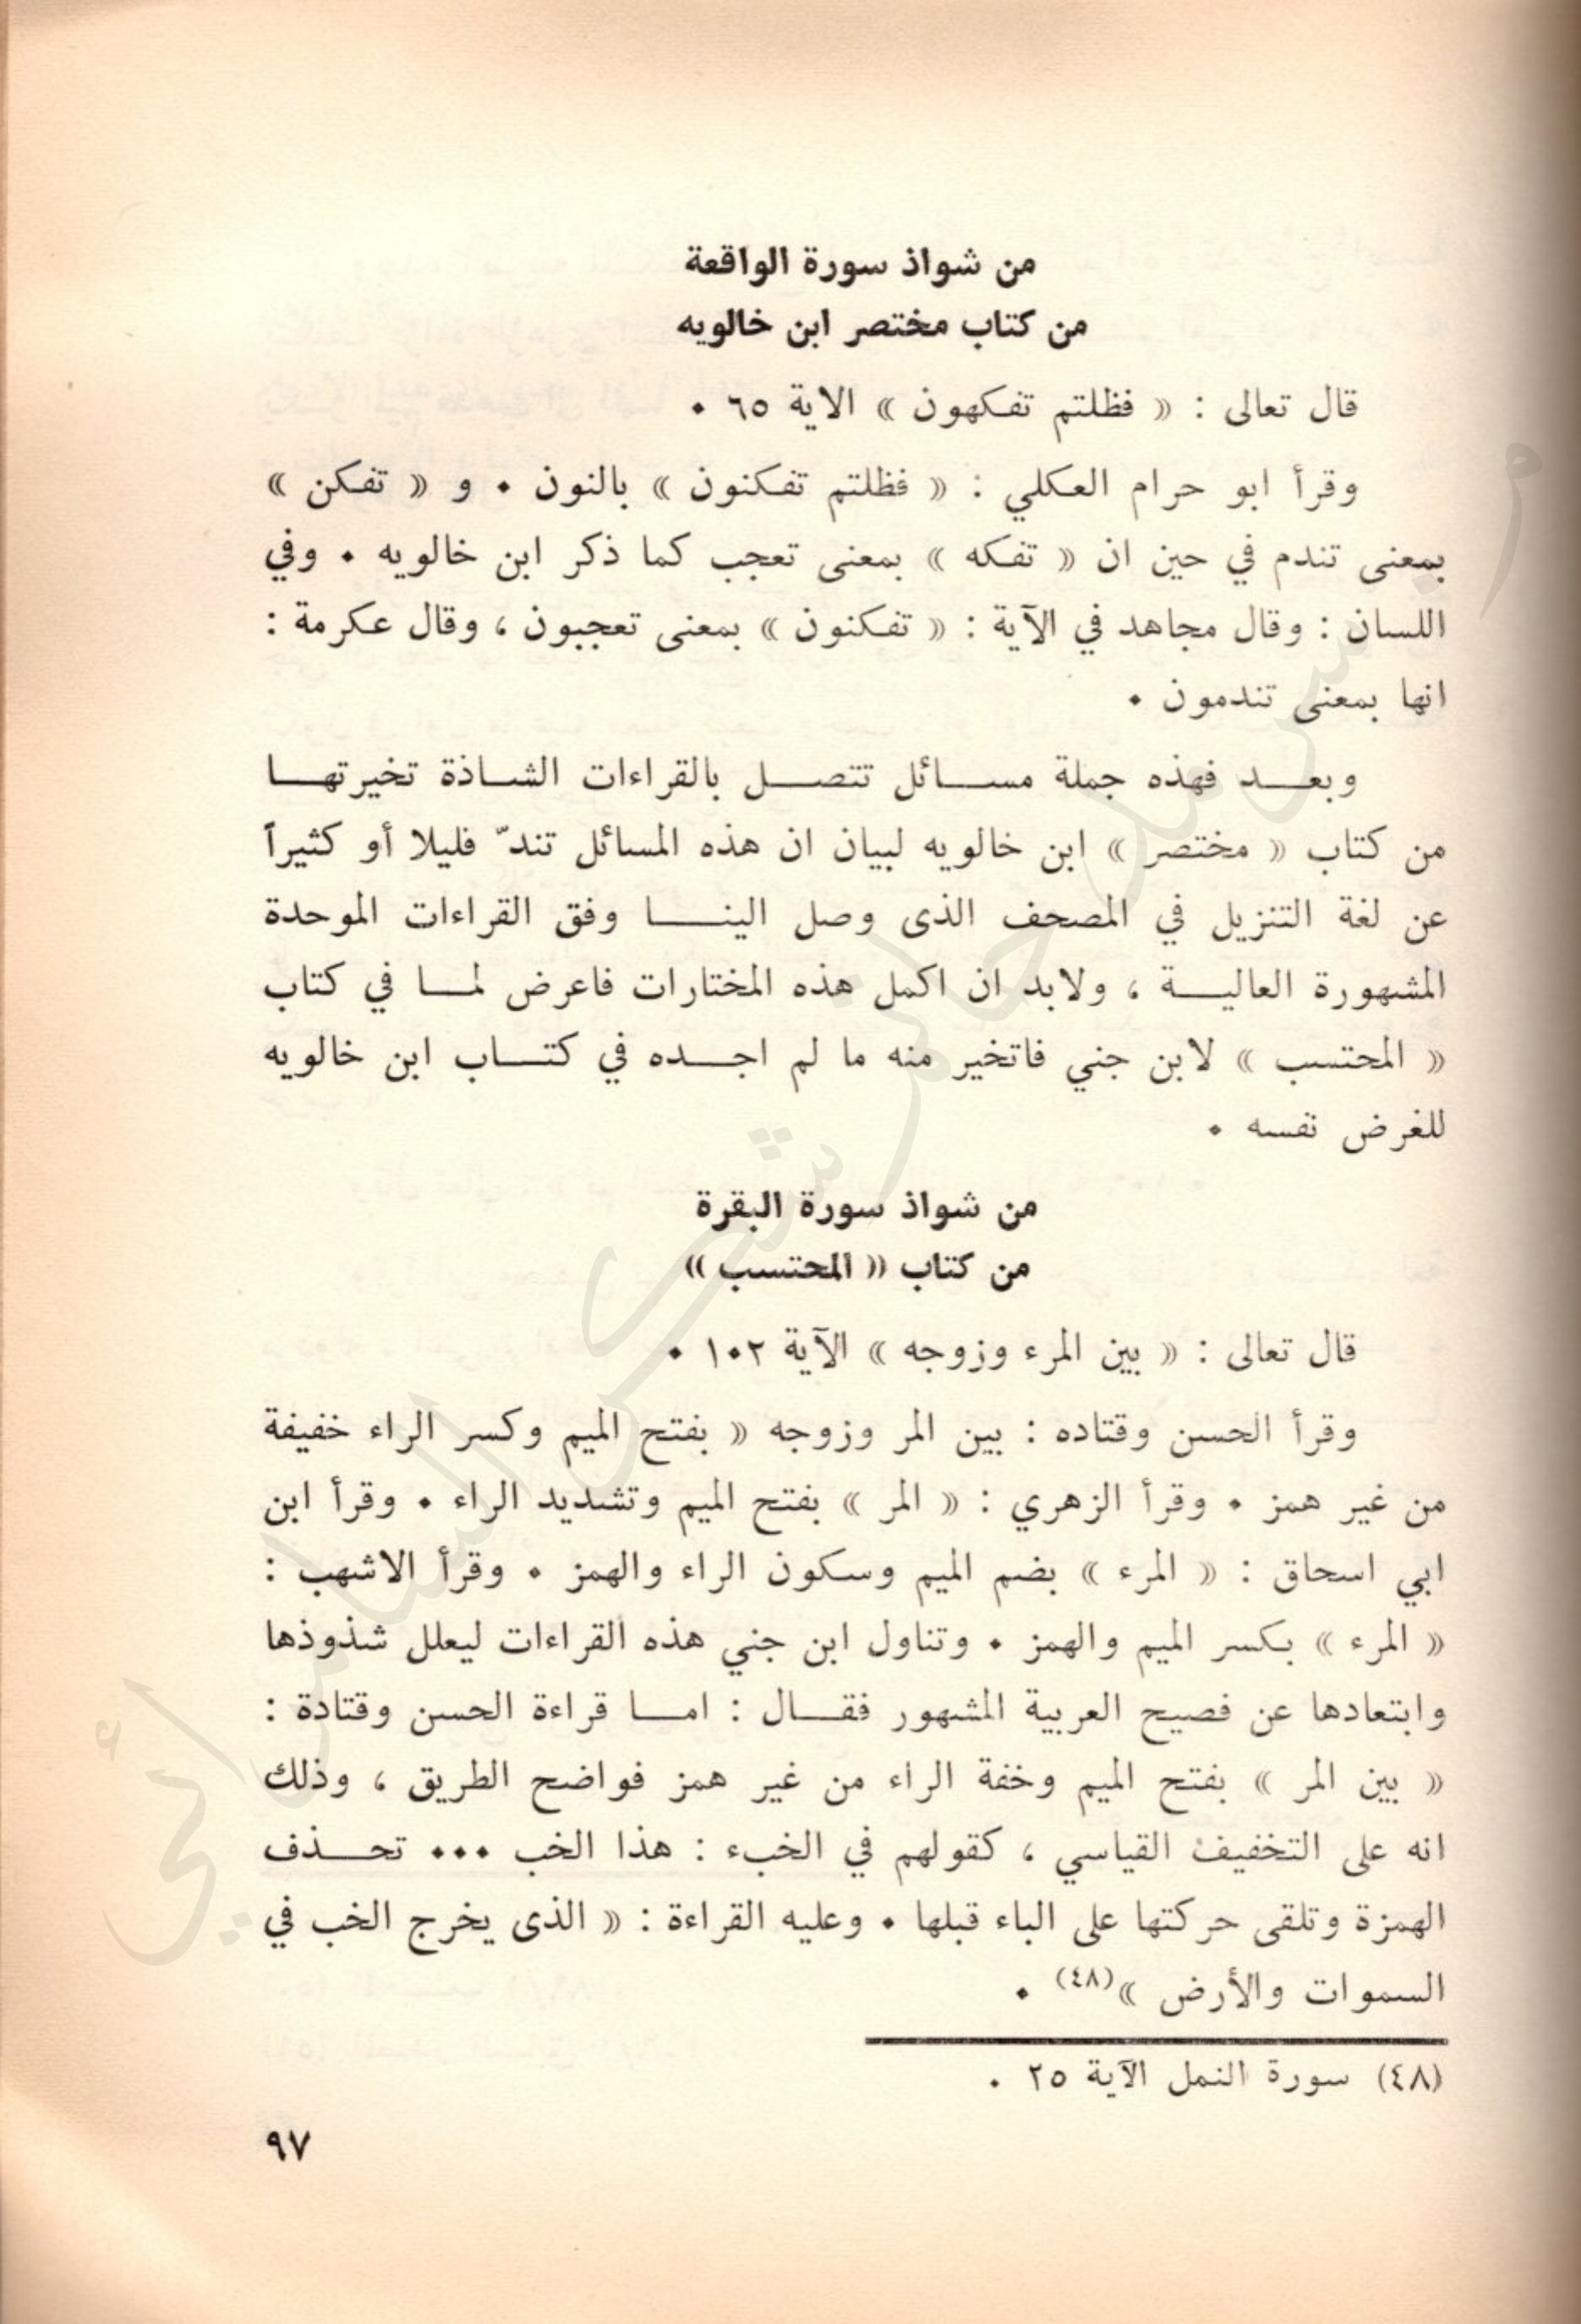 من شواذ سورة الواقعة
من كتاب مختصر ابن خالويه
قال تعالى : « فظلتم تفكهون » الاية ٦٥ .
وقرأ ابو حرام العكلي : « فظلتم تفكنون » بالنون . و « تفكن »
بمعنى تندم في حين ان « تفكه » بمعنى تعجب كما ذكر ابن خالويه . وفي
اللسان : وقال مجاهد في الآية : « تفكنون » بمعنى تعجبون ، وقال عكرمة :
انها بمعنى تندمون .
وبعد فهذه جملة مسائل تتصل بالقراءات الشاذة تخيرتها
من كتاب « مختصر » ابن خالويه لبيان ان هذه المسائل تندّ قليلا أو كثيراً
عن لغة التنزيل في المصحف الذى وصل الينا وفق القراءات الموحدة
المشهورة العالية ، ولابد ان اكمل هذه المختارات فاعرض لما في كتاب
« المحتسب » لابن جني فاتخير منه ما لم اجده في كتاب ابن خالويه
للغرض نفسه .
من شواذ سورة البقرة
من كتاب « المحتسب »
قال تعالى : « بين المرء وزوجه » الآية ١٠٢ .
وقرأ الحسن وقتاده : بين المر وزوجه « بفتح الميم وكسر الراء خفيفة
من غير همز . وقرأ الزهري : « المر » بفتح الميم وتشديد الراء . وقرأ ابن
ابي اسحاق : « المرء » بضم الميم وسكون الراء والهمز . وقرأ الاشهب :
« المرء » بكسر الميم والهمز . وتناول ابن جني هذه القراءات ليعلل شذوذها
وابتعادها عن فصيح العربية المشهور فقال : اما قراءة الحسن وقتادة :
« بين المر » بفتح الميم وخفة الراء من غير همز فواضح الطريق ، وذلك
انه على التخفيف القياسي ، كقولهم في الخبء : هذا الخب ... تحذف
الهمزة وتلقى حركتها على الباء قبلها . وعليه القراءة : « الذى يخرج الخب في
السموات والأرض »(٤٨) .
(٤٨) سورة النمل الآية ٢٥ .
٩٧